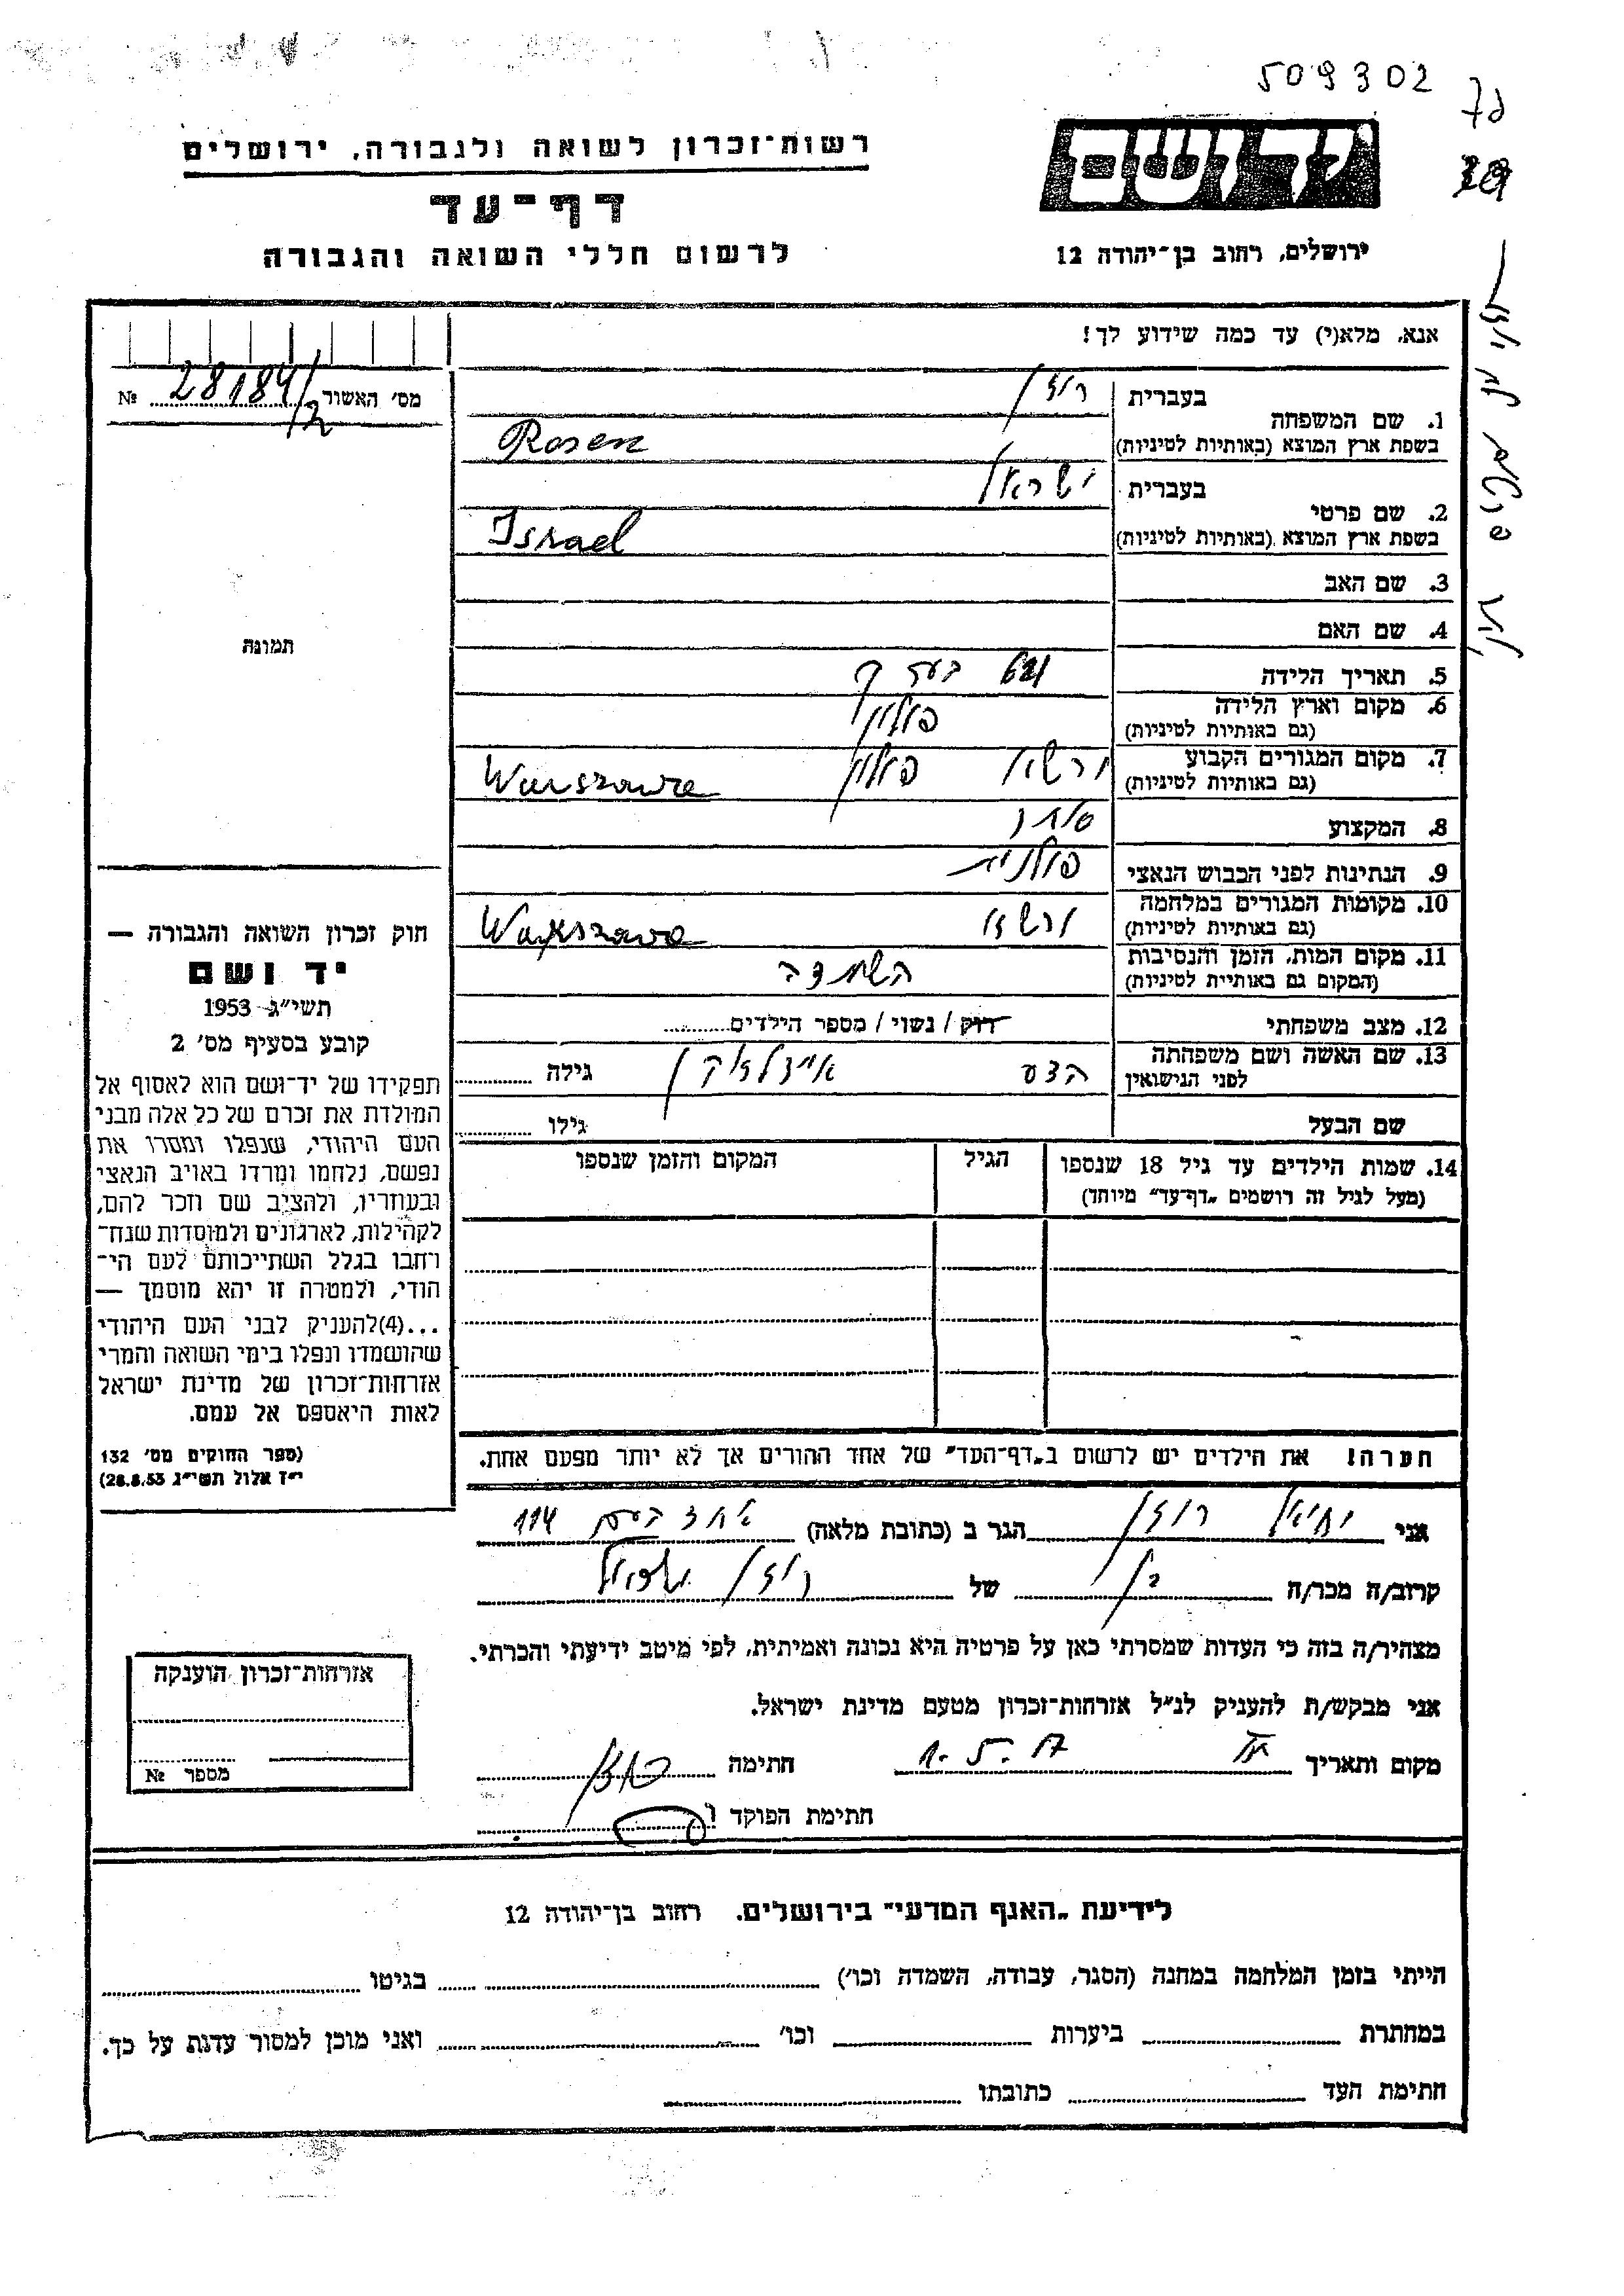 509302
רשות־זכרון לשואה ולגבורה, ירושלים
דף־עד
לרשום חללי השואה והגבורה
ירושלים, רחוב בן־יהודה 12
אנא, מלא(י) עד כמה שידוע לך!
מס׳ האשור 28184/2 №
תמונה
1. שם המשפחה
בעברית רוזן
בשפת ארץ המוצא (באותיות לטיניות) Rosen
2. שם פרטי
בעברית ישראל
בשפת ארץ המוצא (באותיות לטיניות) Israel
3. שם האב
4. שם האם
5. תאריך הלידה
6. מקום וארץ הלידה פולין
(גם באותיות לטיניות)
7. מקום המגורים הקבוע ורשא פולין
(גם באותיות לטיניות) Warszawa
8. המקצוע סוחר
9. הנתינות לפני הכבוש הנאצי פולנית
10. מקומות המגורים במלחמה
(גם באותיות לטיניות) Warszawa
11. מקום המות, הזמן והנסיבות
(המקום גם באותיות לטיניות)
12. מצב משפחתי רוק / נשוי / מספר הילדים
13. שם האשה ושם משפחתה
לפני הנישואין גילה
שם הבעל גילו
14. שמות הילדים עד גיל 18 שנספו הגיל המקום והזמן שנספו
(מעל לגיל זה רושמים „דף־עד״ מיוחד)
חוק זכרון השואה והגבורה —
יד ושם
תשי״ג 1953
קובע בסעיף מס׳ 2
תפקידו של יד־ושם הוא לאסוף אל
המולדת את זכרם של כל אלה מבני
העם היהודי, שנפלו ומסרו את
נפשם, נלחמו ומרדו באויב הנאצי
ובעוזריו, ולהציב שם וזכר להם,
לקהילות, לארגונים ולמוסדות שנח־
רחבו בגלל השתייכותם לעם הי־
הודי, ולמטרה זו יהא מוסמך —
...(4)להעניק לבני העם היהודי
שהושמדו ונפלו בימי השואה והמרי
אזרחות־זכרון של מדינת ישראל
לאות היאספם אל עמם.
(ספר החוקים מס׳ 132
י״ז אלול תשי״ג 28.8.53)
הערה! את הילדים יש לרשום ב„דף־העד״ של אחד ההורים אך לא יותר מפעם אחת.
אני יחיאל רוזן הגר ב (כתובת מלאה) אחד העם 114
קרוב/ה מכר/ה בן של רוזן ישראל
מצהיר/ה בזה כי העדות שמסרתי כאן על פרטיה היא נכונה ואמיתית, לפי מיטב ידיעתי והכרתי.
אני מבקש/ת להעניק לנ״ל אזרחות־זכרון מטעם מדינת ישראל.
מקום ותאריך חתימה
חתימת הפוקד
אזרחות־זכרון הוענקה
מספר №
לידיעת „האגף המדעי״ בירושלים. רחוב בן־יהודה 12
הייתי בזמן המלחמה במחנה (הסגר, עבודה, השמדה וכו׳) בגיטו
במחתרת ביערות וכו׳ ואני מוכן למסור עדות על כך.
חתימת העד כתובתו